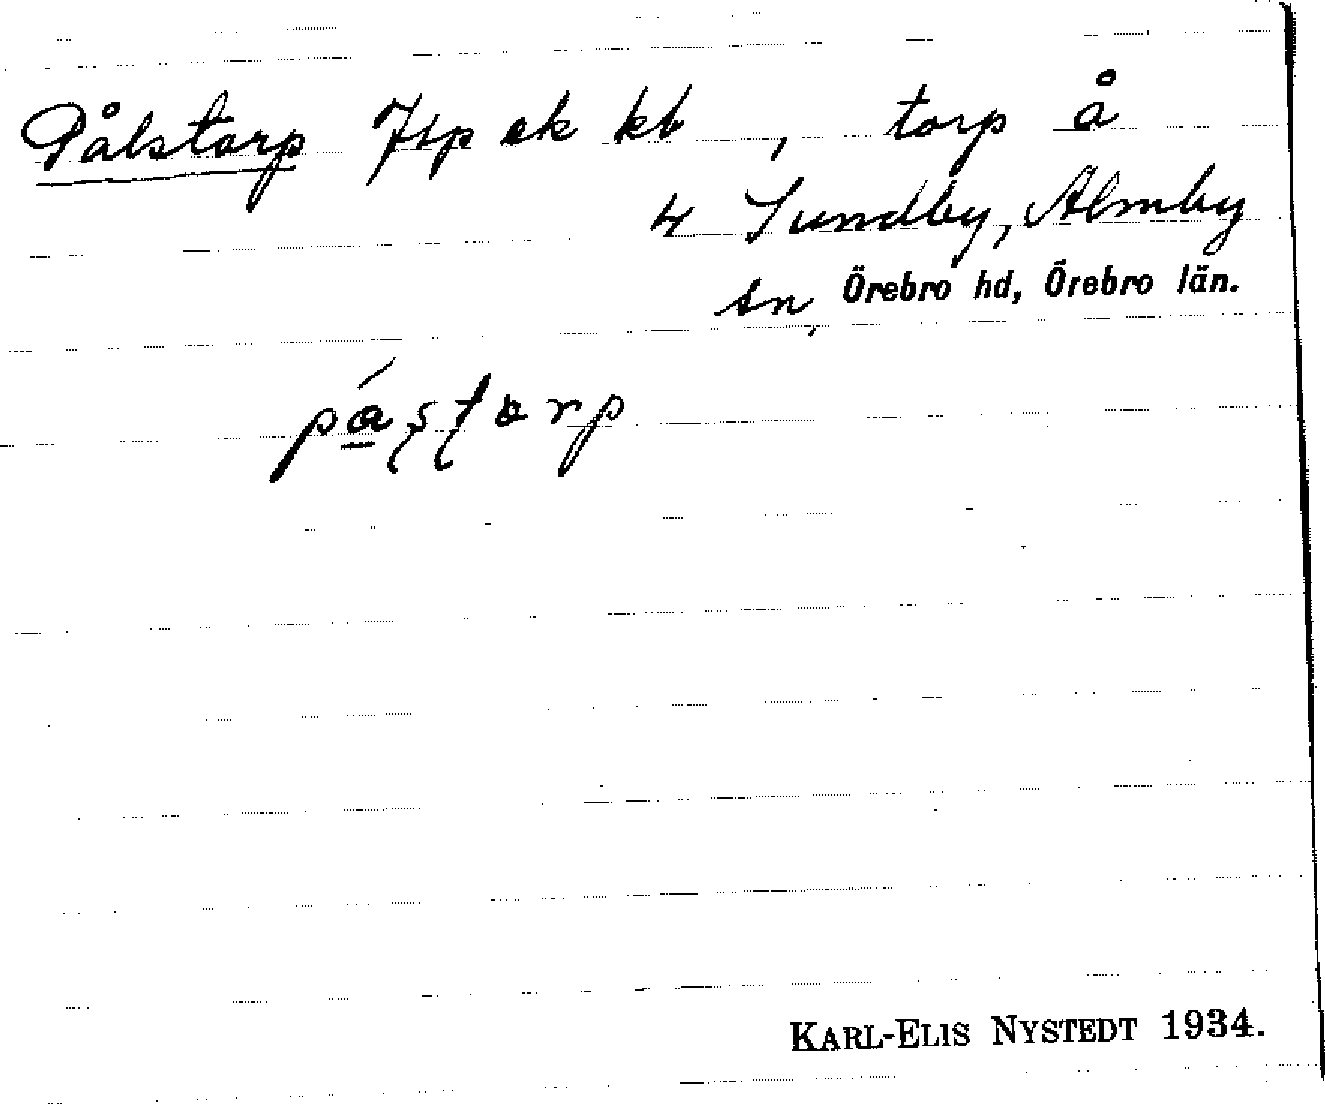 Pålstorp Jfp ek kb , torp å
4 Sundby, Almby
sn, Örebro hd, Örebro län.
pástorp
KARL-ELIS NYSTEDT 1934.